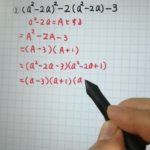 ① (a²-2a)²-2(a²-2a)-3
a²-2a=Aとする
=A²-2A-3
=(A-3)(A+1)
=(a²-2a-3)(a²-2a+1)
=(a-3)(a+1)(a